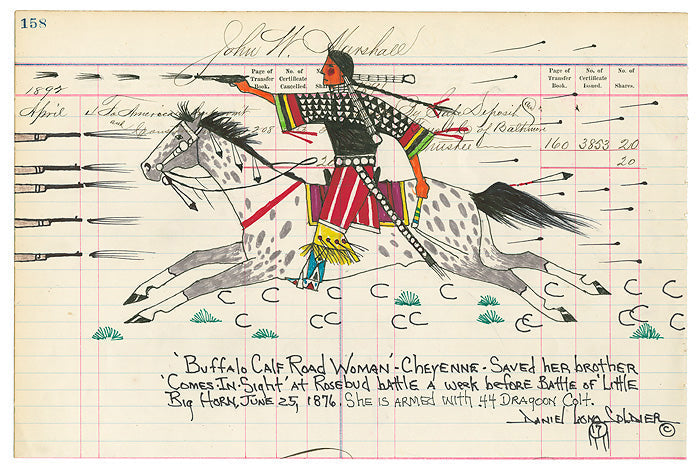 158
John W. Marshall
Page of Transfer Book. No. of Certificate Cancelled. No. of Shares. Page of Transfer Book. No. of Certificate Issued. No. of Shares.
1892
April Safe Deposit
and 208 of Baltimore
Trustee 160 3853 20
20
'Buffalo Calf Road Woman' - Cheyenne - Saved her brother
'Comes-In-Sight' at Rosebud battle a week before Battle of Little
Big Horn, June 25, 1876. She is armed with .44 Dragoon Colt.
Daniel Long Soldier ©
17